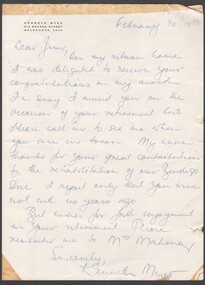 KENNETH MYER
MELBOURNE 3000
February 20
Dear Jim,
On my return home
I was delighted to receive your
congratulations on my award
I'm sorry I missed you on the
occasion of your retirement but
please call in to see me when
you are in town. My warm
thanks for your great contribution
to the rehabilitation of our Bendigo
Store. I regret only that you were
not with us years ago.
Best wishes for full enjoyment
in your retirement. Please
remember me to Mrs Mahoney
Sincerely,
Kenneth Myer